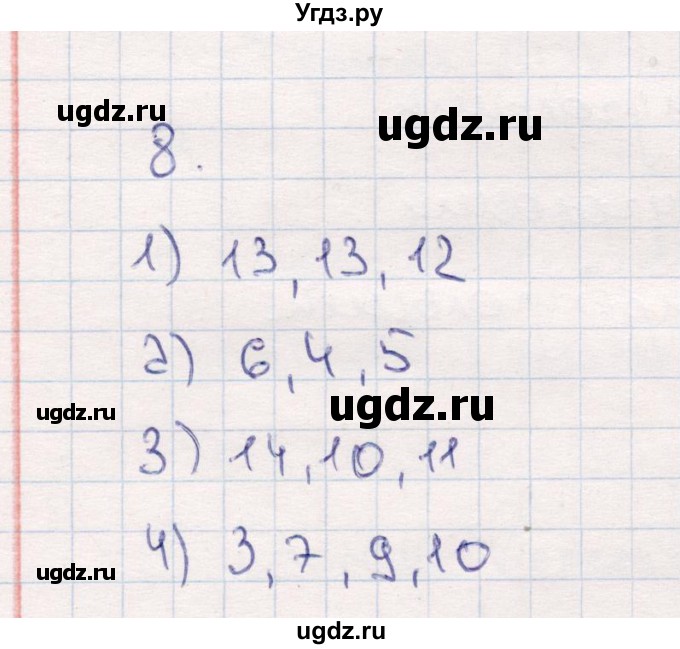 Угдз.ру
ugdz.ru
ugdz.ru
8.
1) 13, 13, 12
2) 6, 4, 5
ugdz.ru
ugdz.ru
3) 14, 10, 11
4) 3, 7, 9, 10
ugdz.ru
ugdz.ru